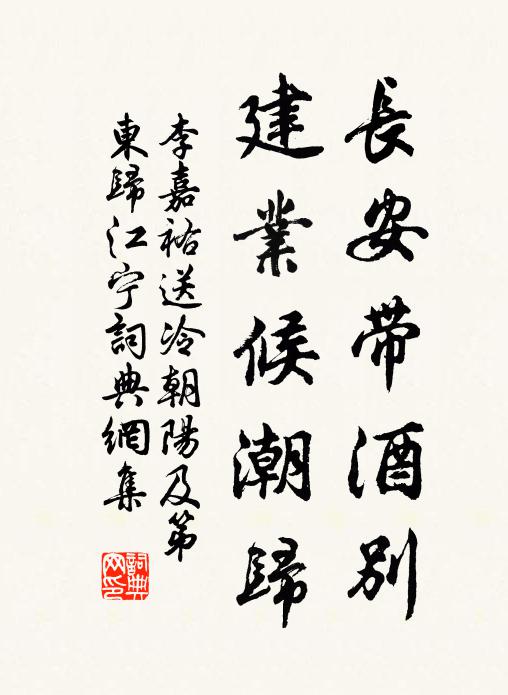 長安带酒别
建業候潮歸
李嘉祐送冷朝陽及第
東歸江宁詞典網集
詞典網印